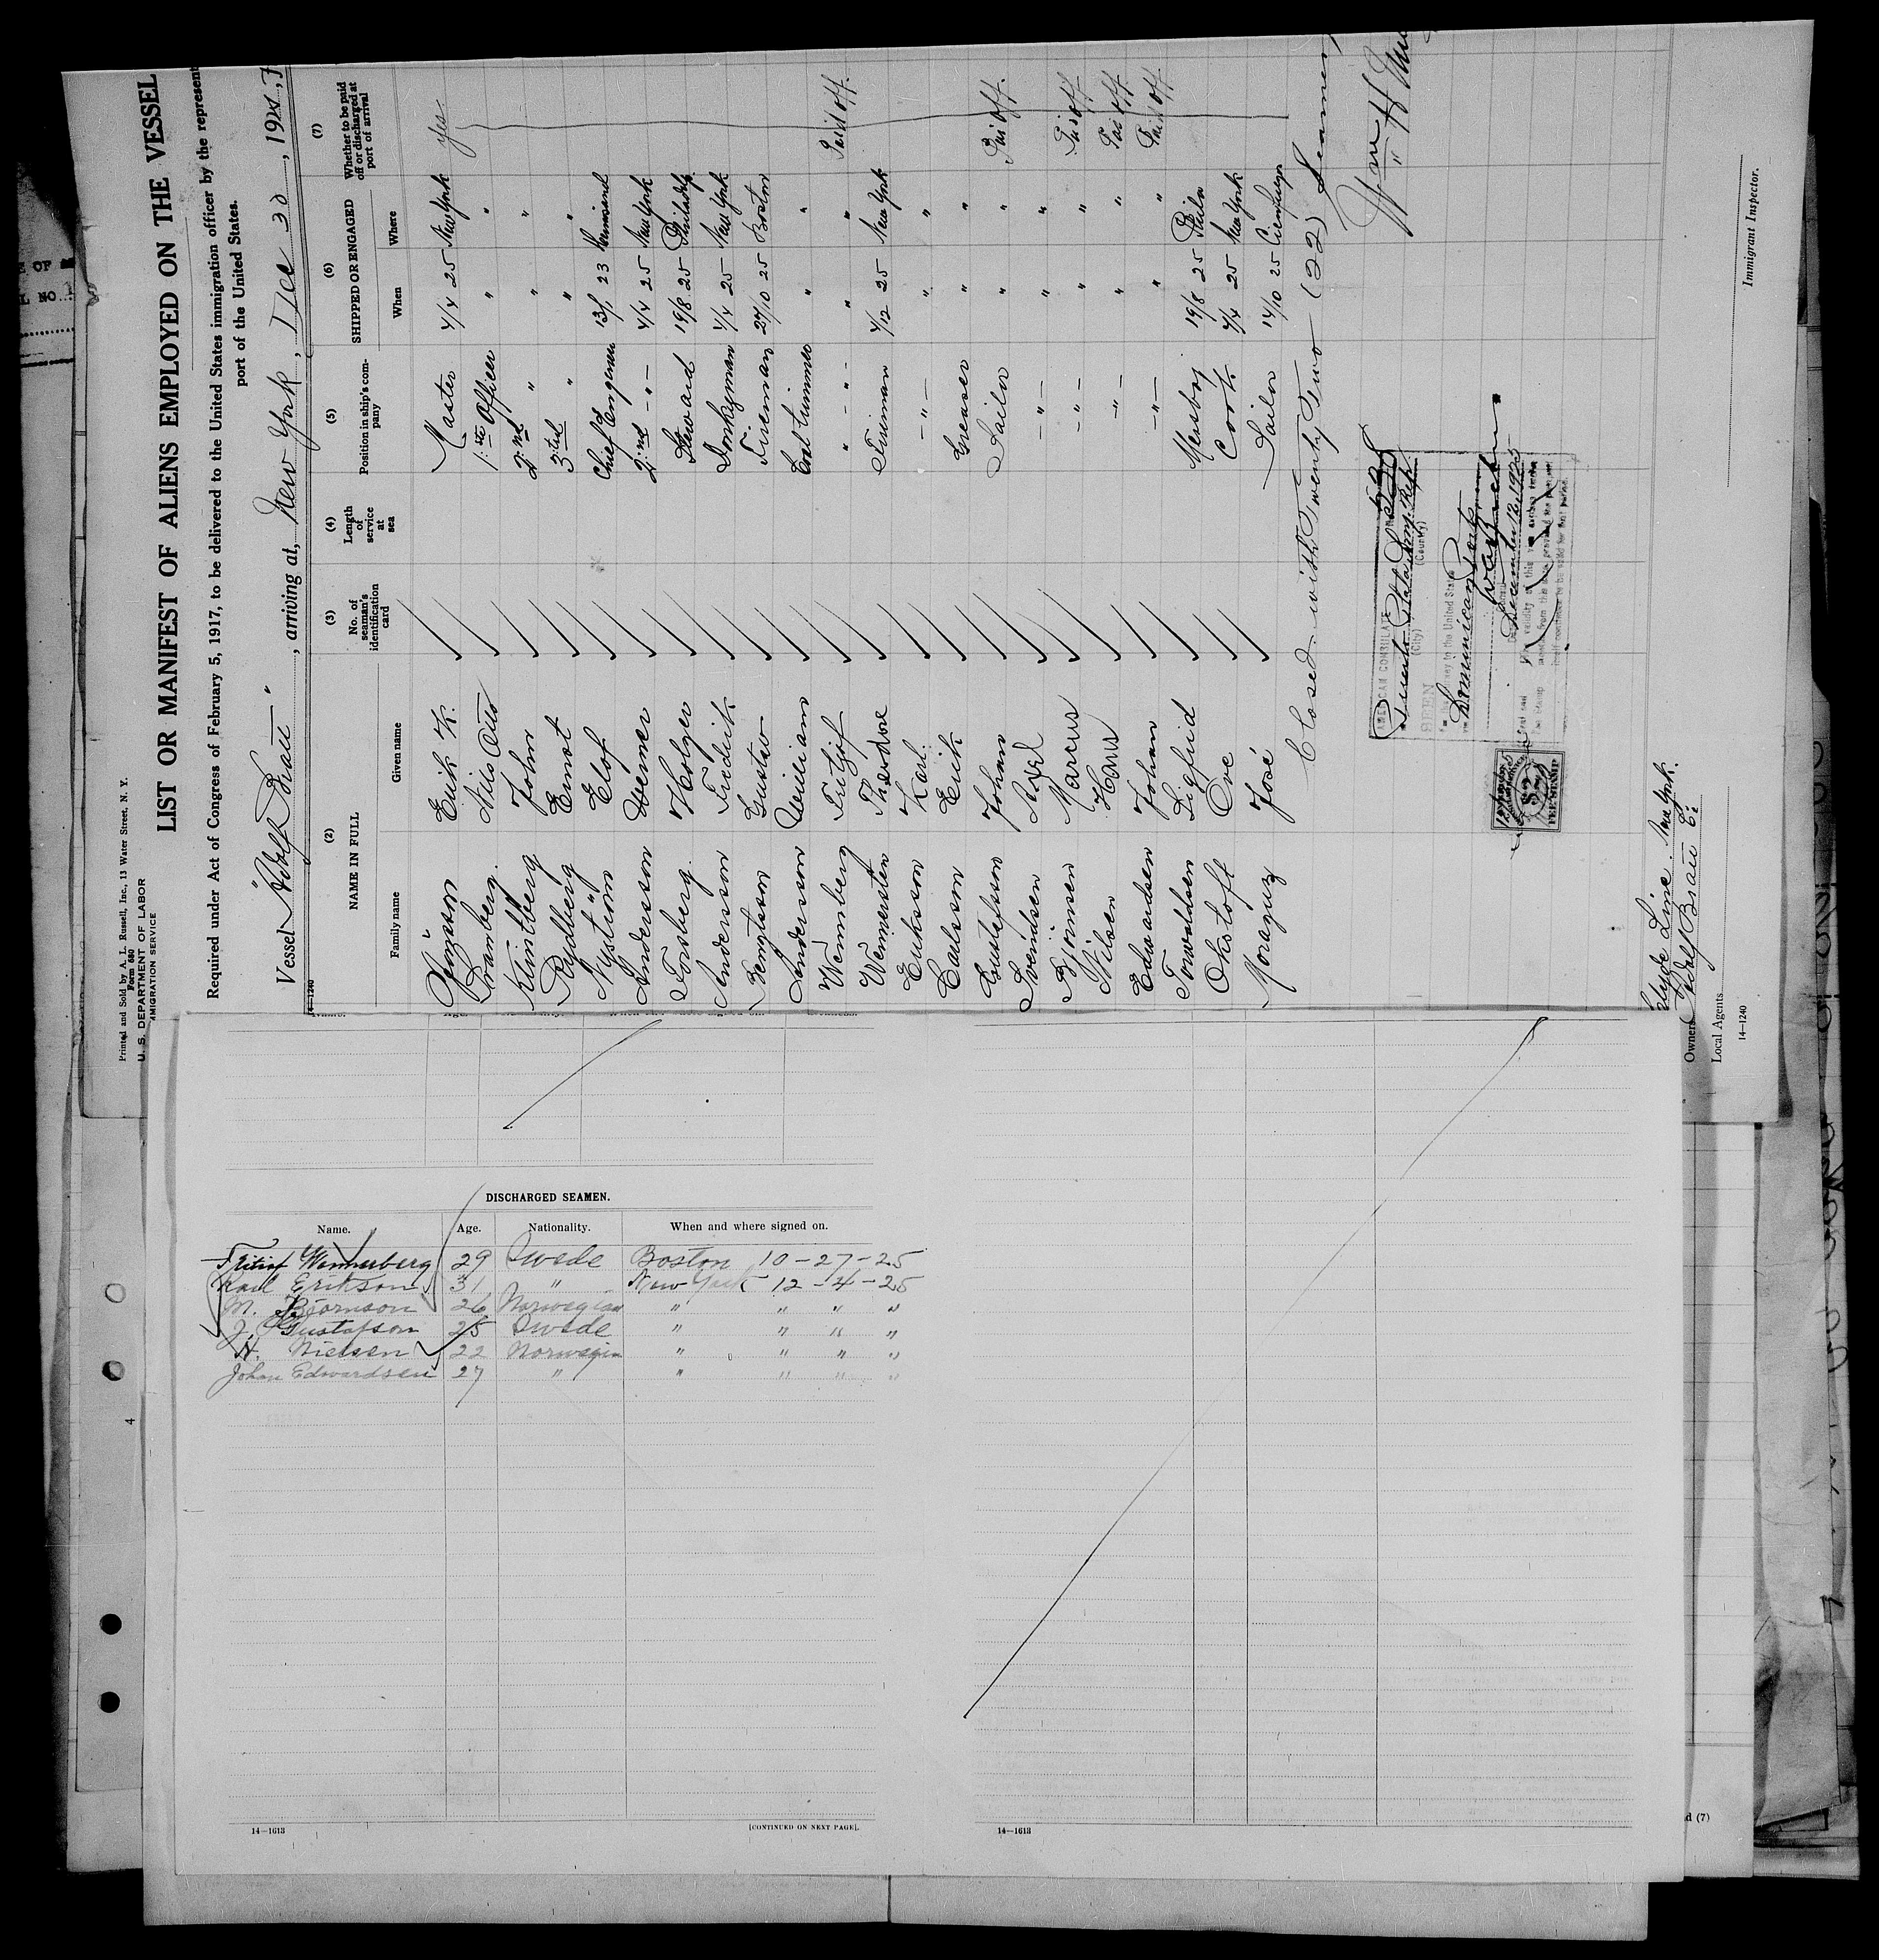 Printed and Sold by A. L. Russell, Inc., 13 Water Street, N. Y.
Form 680
U. S. DEPARTMENT OF LABOR
IMMIGRATION SERVICE
LIST OR MANIFEST OF ALIENS EMPLOYED ON THE VESSEL
Required under Act of Congress of February 5, 1917, to be delivered to the United States immigration officer by the represent
port of the United States.
Vessel "Adolf Bratt", arriving at, New York, Dec 30, 1925, F
14—1240
(2) (3) (4) (5) (6) (7)
NAME IN FULL No. of seaman's identification card Length of service at sea Position in ship's company SHIPPED OR ENGAGED Whether to be paid off or discharged at port of arrival
Family name Given name When Where
Jönsson Erik K. Master 4/4 25 New York yes
Bramberg Nils Otto 1:ste Officer " "
Klintberg John 2:nd " " "
Rydberg Ernst 3:rd " " "
Nyström Elof Chief Engineer 13/1 23
Andersson Werner 2:nd -"- 4/4 25 New York
Forsberg Holger Steward 19/8 25 Philadelp
Andersson Fredrik Donkeyman 4/4 25 New York
Bengtsson Gustav Fireman 27/10 25 Boston
Andersson William Coal trimmer " "
Wennberg Fritjof " -"- " " Paid off.
Wennersten Theodore Fireman 4/12 25 New York
Eriksson Karl -"- " "
Carlsson Erik Greaser " "
Gustafsson Johan Sailor " " Paid off.
Svendsen Axel -"- " "
Bjornsen Marcus -"- " " Paid off
Nilsen Hans -"- " " Paid off
Edwardsen Johan -"- " " Paid off
Torvaldsen Sigfrid Messboy 19/8 25 Phila
Okstoft Ove Cook 4/4 25 New York
Moraguz José Sailor 14/10 25 Cienfuegos
Closed with Twenty Two (22) Seamen
Wm H
AMERICAN CONSULATE
Puerto Plata Dom. Rep.
(City) (Country)
SEEN
Dominican
December 12 1925
$2
FEE STAMP
Clyde Line. New York.
Owners Adolf Bratt & Co
Local Agents
Immigrant Inspector.
14—1240
DISCHARGED SEAMEN.
Name. Age. Nationality. When and where signed on.
Fritiof Wennerberg 29 Swede Boston 10-27-25
Karl Erikson 31 " New York 12-4-25
M. Bjornson 26 Norwegian " " " "
J. Gustafson 25 Swede " " " "
H. Nielsen 22 Norwegian " " " "
Johan Edwardsen 27 " " " " "
14—1613
[CONTINUED ON NEXT PAGE].
14—1613
4
d (7)